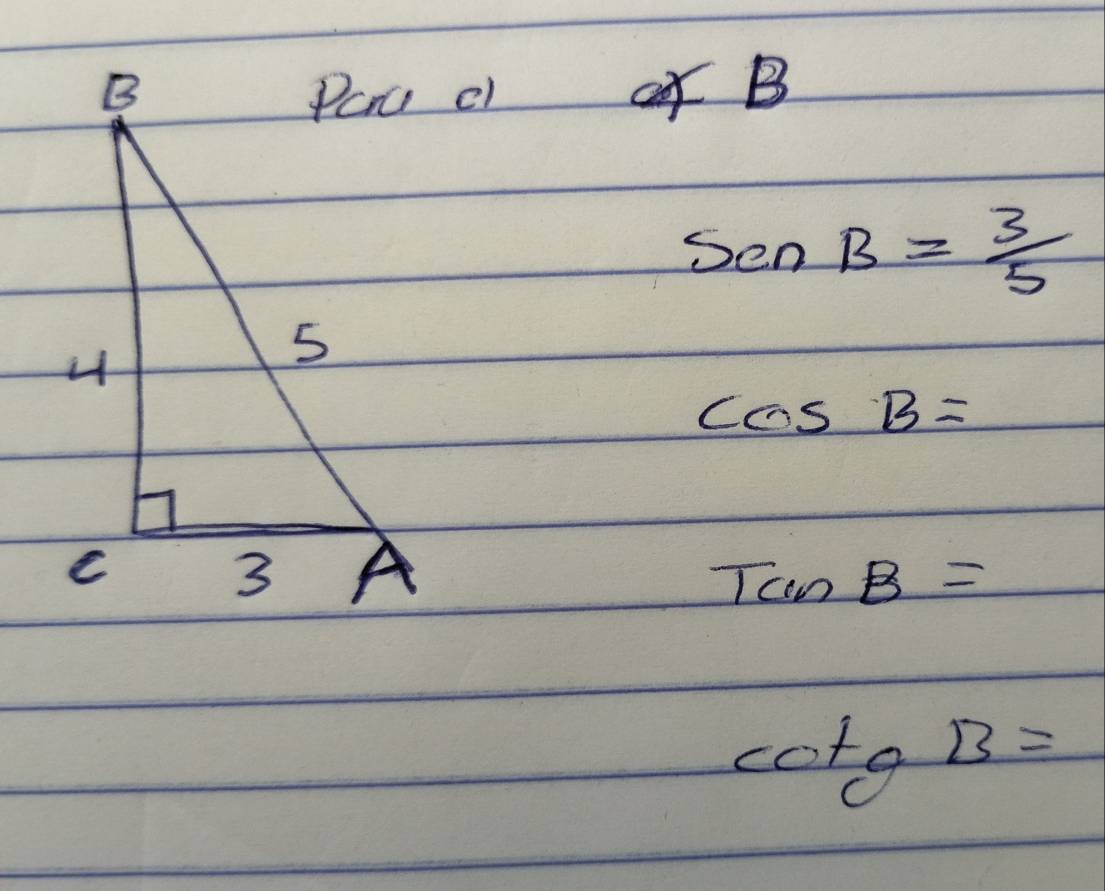 B Para el ∢ B
Sen B = 3/5
4 5
cos B =
C 3 A
Tan B =
cotg B =